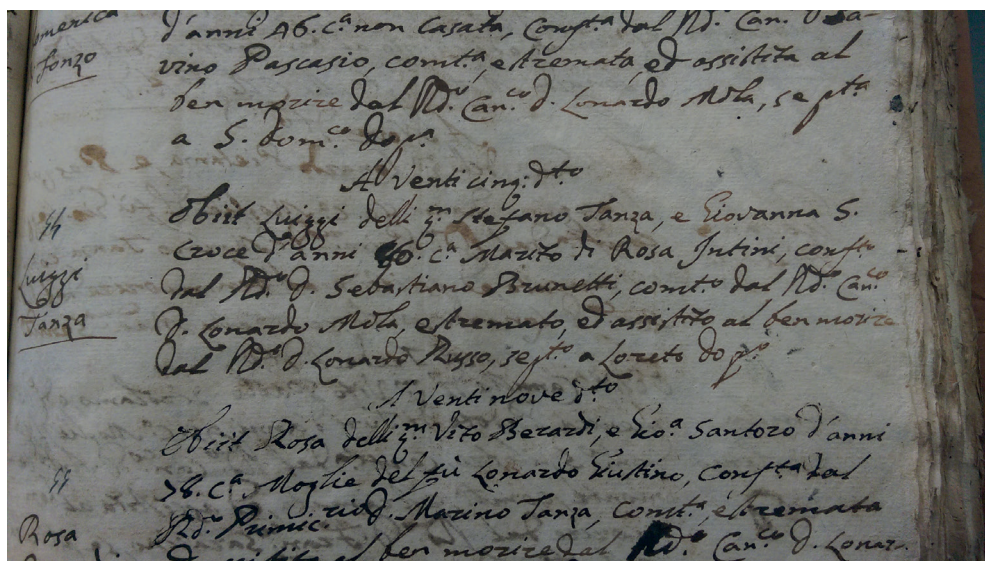 omenica
Fonzo
d'anni 46. cᵃ non casata, Confᵗᵃ dal Rdᵒ Can.
vino Pascasio, comᵗᵃ, estremata, ed assistita al
ben morire dal Rdᵒ Canᶜᵒ d. Lonardo Mola, sepᵗᵃ
a S. domᶜᵒ do pᵃ
A Venti cinq: dᵗᵒ
Luiggi
Tanza
Obiit Luiggi delli qᵐ Stefano Tanza, e Giovanna S.
Croce d'anni cᵃ Marito di Rosa Intini, confᵗᵒ
dal Rdᵒ d. Sebastiano Brunetti, comᵗᵒ dal Rdᵒ Canᶜᵒ
D. Lonardo Mola, estremato, ed assistito al ben morire
dal Rdᵒ d. Lonardo Russo, sepᵗᵒ a Loreto do pᵒ
A Venti nove dᵗᵒ
Rosa
Obiit Rosa delli qᵐ Vito Berardi, e Gioᵃ Santoro d'anni
78. cᵃ Moglie del fù Lonardo Giustino, confᵗᵃ dal
Rdᵒ Primicʳⁱᵒ d. Marino Tanza, comᵗᵃ, estremata
ben morire dal Rdᵒ Canᶜᵒ d. Lonar.